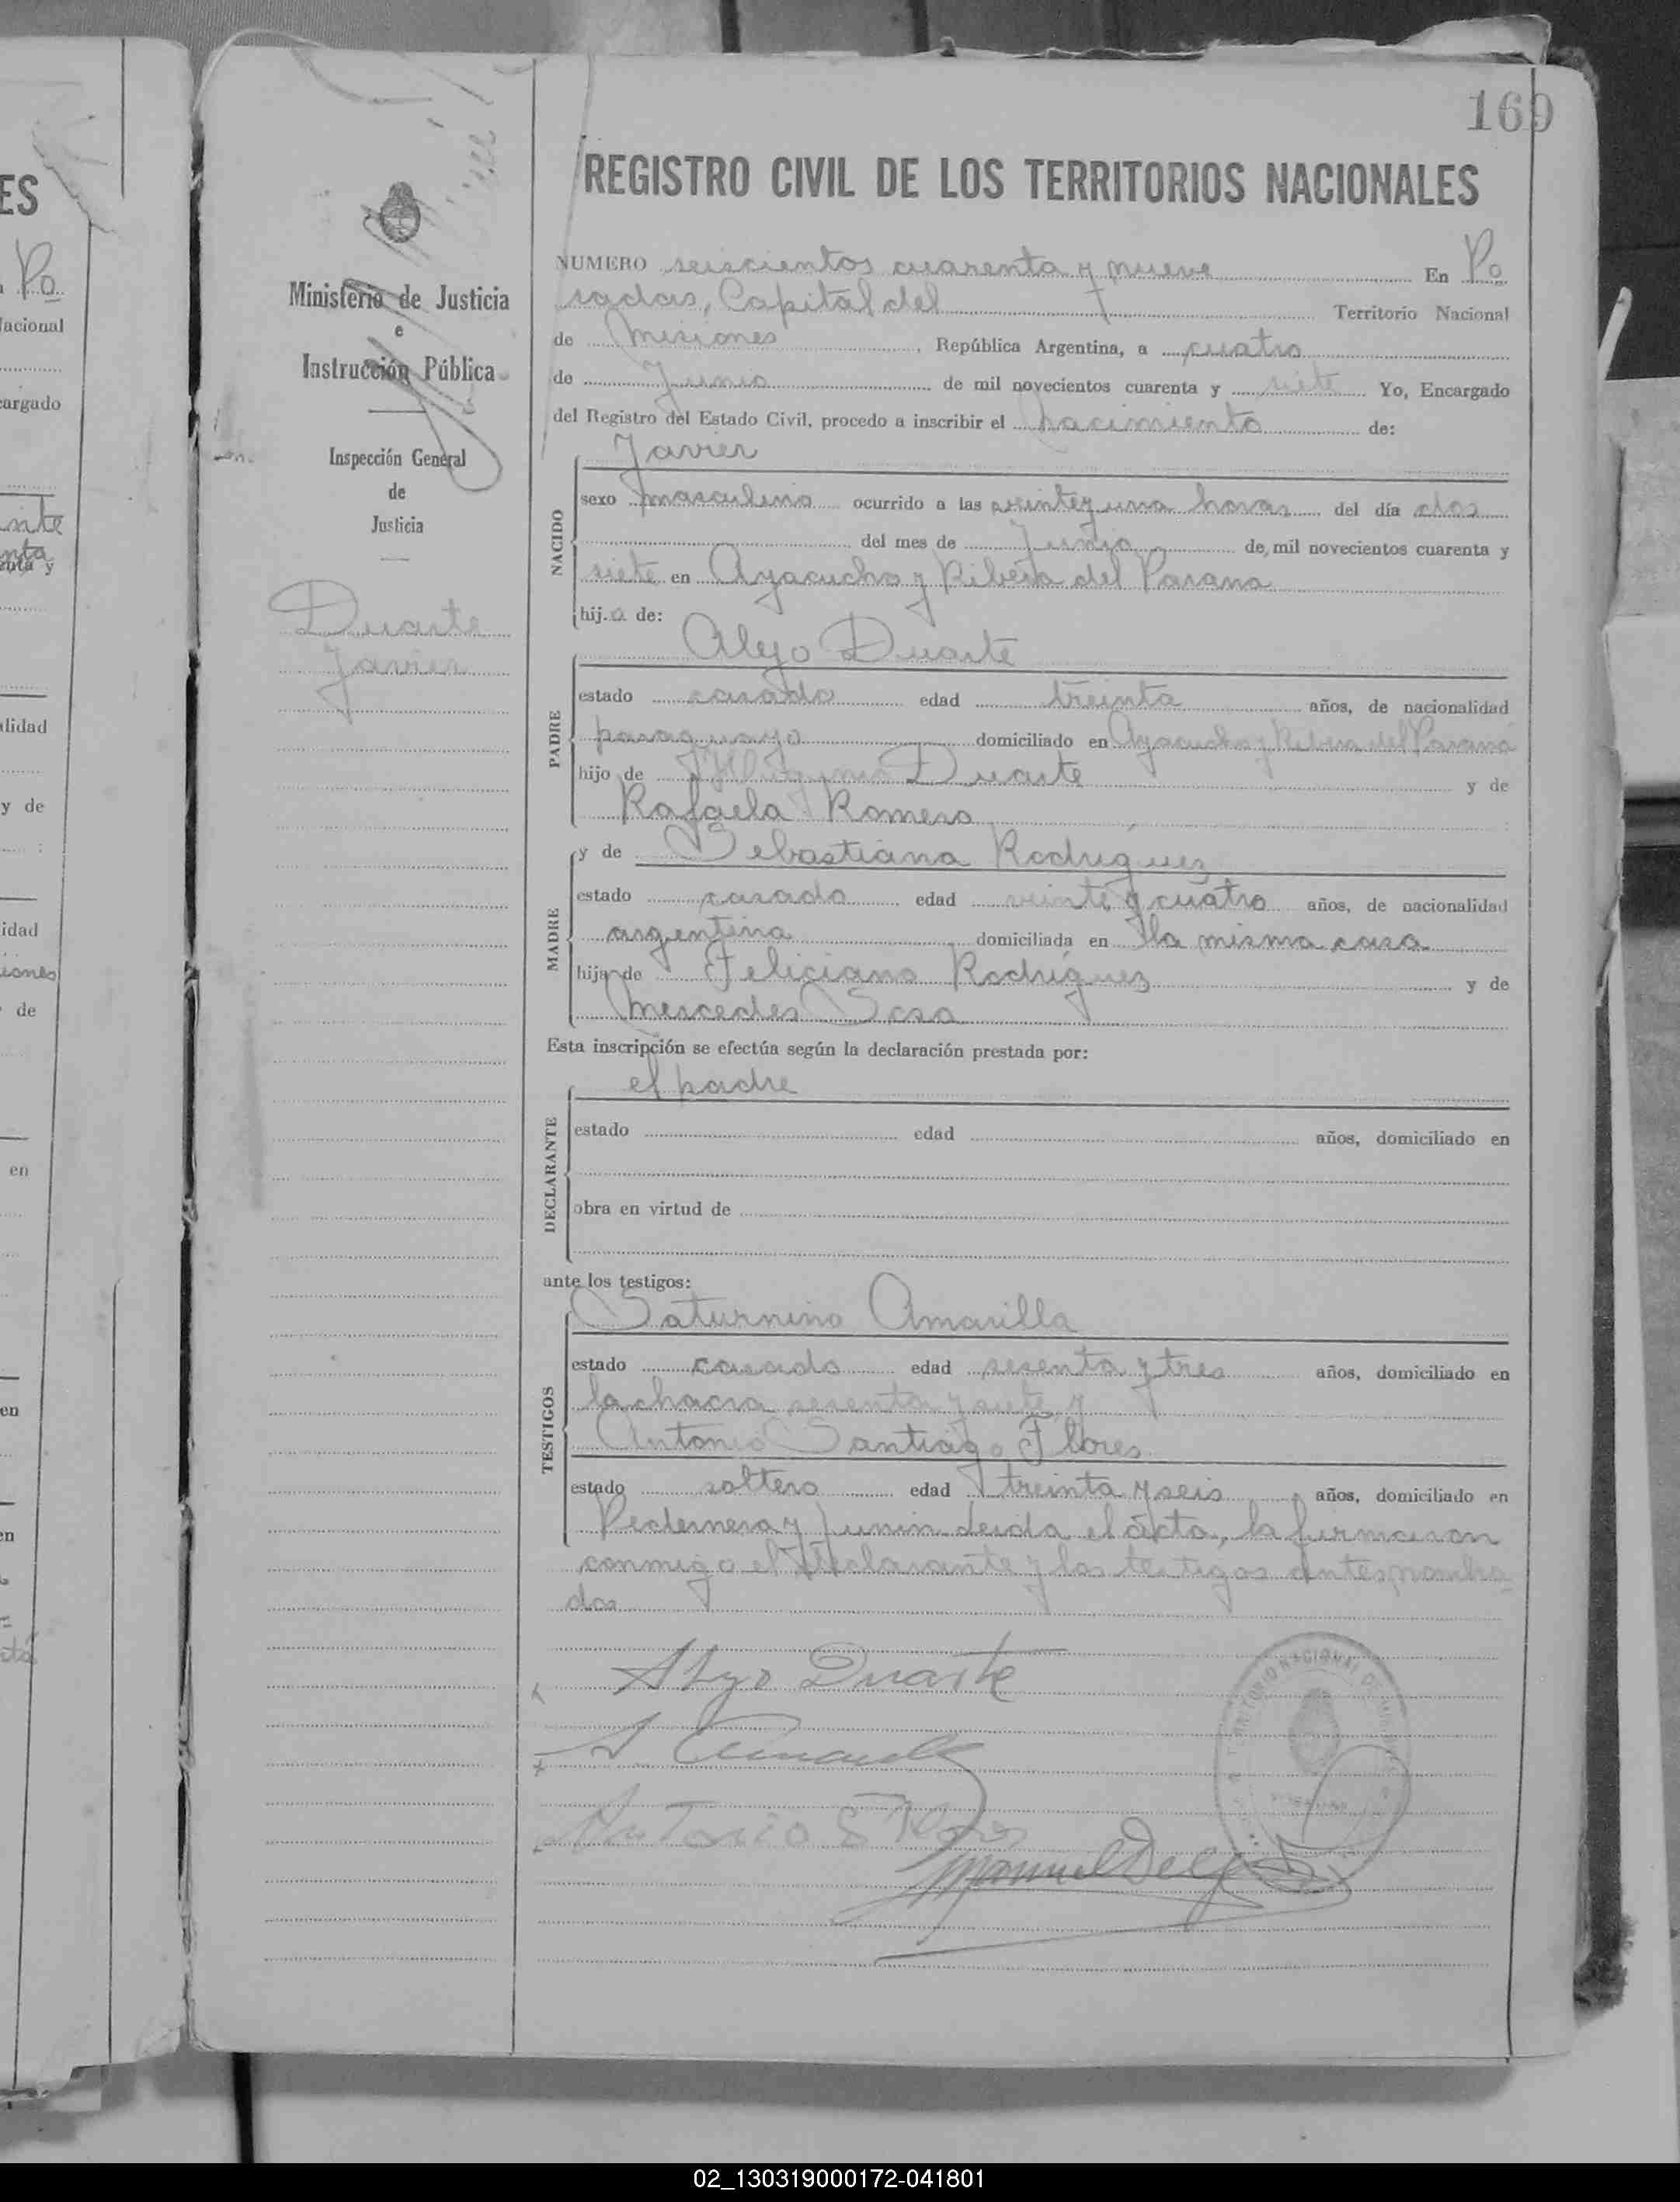 169
REGISTRO CIVIL DE LOS TERRITORIOS NACIONALES
Ministerio de Justicia
e
Instrucción Pública
Inspección General
de
Justicia
Duarte
Javier
NUMERO seiscientos cuarenta y nueve En Po
sadas, Capital del Territorio Nacional
de Misiones, República Argentina, a cuatro
de Junio de mil novecientos cuarenta y siete Yo, Encargado
del Registro del Estado Civil, procedo a inscribir el nacimiento de:
Javier
NACIDO
sexo masculino ocurrido a las veinte y una horas del día dos
del mes de Junio de mil novecientos cuarenta y
siete en Ayacucho y Ribera del Parana
hijo de:
Alejo Duarte
PADRE
estado casado edad treinta años, de nacionalidad
paraguayo domiciliado en Ayacucho y Ribera del Paraná
hijo de Duarte y de
Rafaela Romero
y de Sebastiana Rodríguez
MADRE
estado casada edad veinte y cuatro años, de nacionalidad
argentina domiciliada en la misma casa
hija de Feliciano Rodríguez y de
Mercedes Sosa
Esta inscripción se efectúa según la declaración prestada por:
el padre
DECLARANTE
estado edad años, domiciliado en
obra en virtud de
ante los testigos:
Saturnino Amarilla
TESTIGOS
estado casado edad sesenta y tres años, domiciliado en
la chacra sesenta y siete y
Antonio Santiago Flores
estado soltero edad treinta y seis años, domiciliado en
Pedernera y Junin. Leida el acta, la firmaron
conmigo el declarante y los testigos antes nombra
dos
Alejo Duarte
Antonio S Flores
Manuel
TERRITORIO NACIONAL DE MISIONES
02_130319000172-041801